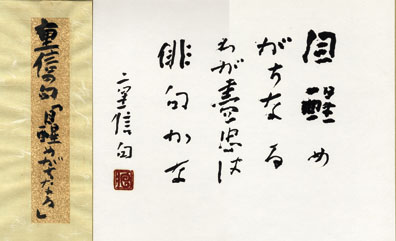 目醒め
がちなる
わが盡忠は
俳句かな
重信句
重信の句「目醒めがちなる」